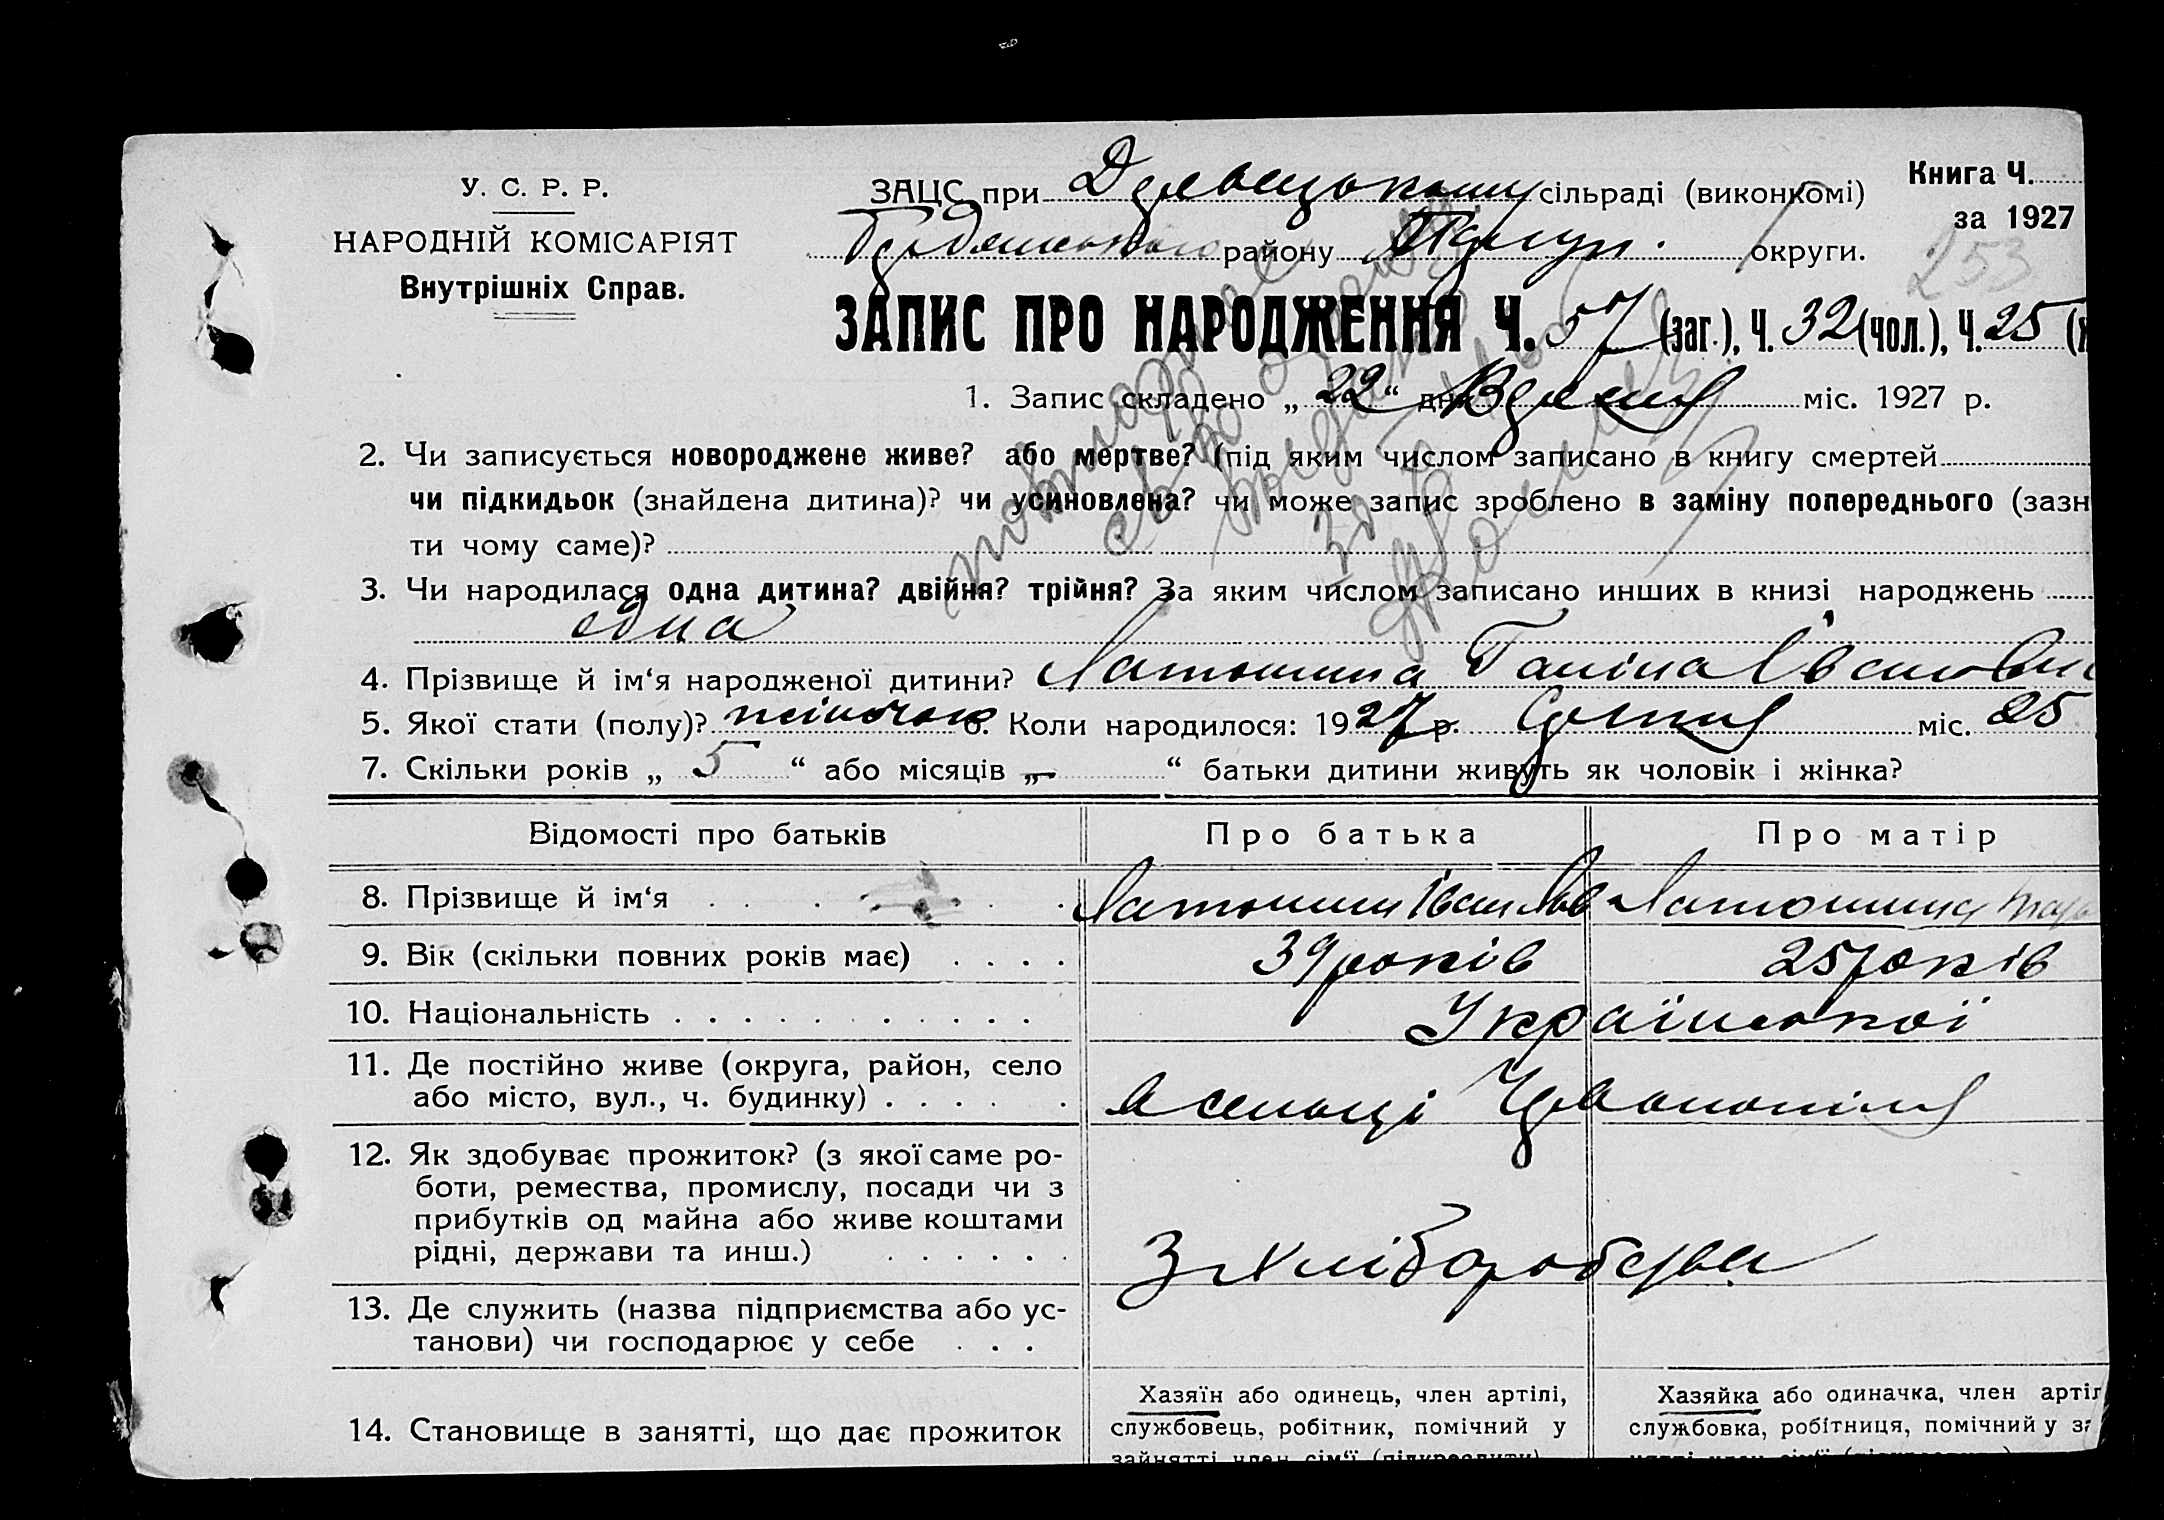 У. С. Р. Р.
НАРОДНІЙ КОМІСАРІЯТ
Внутрішніх Справ.
ЗАЦС при сільраді (виконкомі)
району округи.
Книга Ч.
за 1927
253
ЗАПИС ПРО НАРОДЖЕННЯ Ч. 57 (заг.), Ч. 32 (чол.), Ч. 25
1. Запис складено „ 22 “ дня міс. 1927 р.
2. Чи записується новороджене живе? або мертве? (під яким числом записано в книгу смертей
чи підкидьок (знайдена дитина)? чи усиновлена? чи може запис зроблено в заміну попереднього (зазн
ти чому саме)?
3. Чи народилася одна дитина? двійня? трійня? За яким числом записано инших в книзі народжень
одна
4. Прізвище й ім‘я народженої дитини? Латошина Галіна Івановн
5. Якої стати (полу)? жіночої 6. Коли народилося: 1927 р. Серпня міс. 25
7. Скільки років „ 5 “ або місяців „ – “ батьки дитини живуть як чоловік і жінка?
Відомості про батьків Про батька Про матір
8. Прізвище й ім‘я . . . . . . . Латошин Іван Латошина
9. Вік (скільки повних років має) . . . . 39 років 25 років
10. Національність . . . . . . . . . . Української
11. Де постійно живе (округа, район, село
або місто, вул., ч. будинку) . . . . .
12. Як здобуває прожиток? (з якої саме ро-
боти, ремества, промислу, посади чи з
прибутків од майна або живе коштами
рідні, держави та инш.) . . . . . .
З хліборобства
13. Де служить (назва підприємства або ус-
танови) чи господарює у себе . . .
14. Становище в занятті, що дає прожиток
Хазяїн або одинець, член артілі,
службовець, робітник, помічний у
зайнятті член сім‘ї (підкреслити)
Хазяйка або одиначка, член артіл
службовка, робітниця, помічний у за